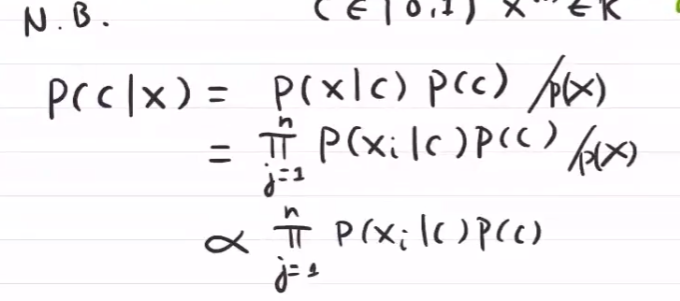 N.B. C ∈ {0,1} x ∈ R
P(c|x) = P(x|c) P(c) /p(x)
= ∏_{j=1}^{n} P(x_i|c) P(c) /p(x)
∝ ∏_{j=1}^{n} P(x_i|c) P(c)